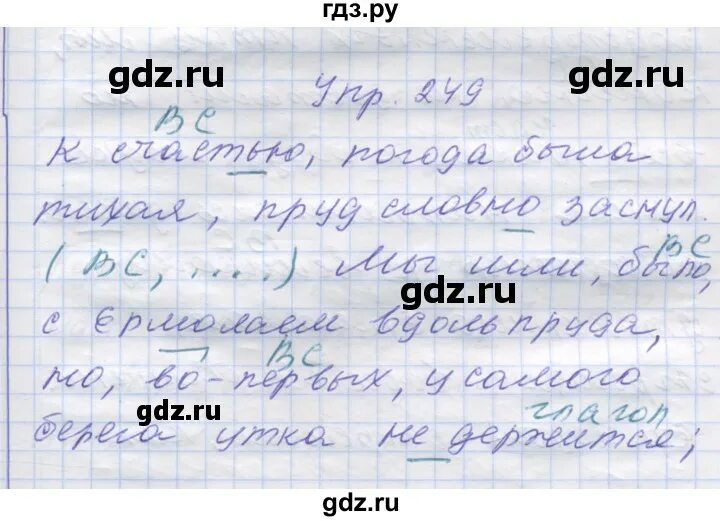 гдз.ру
gdz.ru gdz.ru
Упр. 249
ВС
К счастью, погода была
тихая, пруд словно заснул.
ВС
(ВС, ....) Мы шли, было,
gdz.ru
с Ермолаем вдоль пруда,
ВС
но, во-первых, у самого
gdz.ru
глагол
берега утка не держится;
gdz.ru